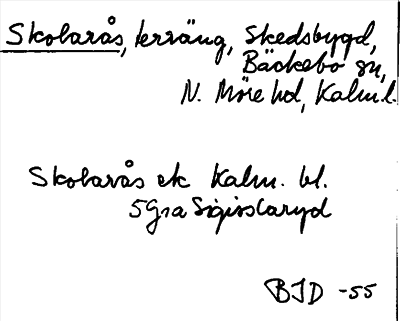 Skobarås, terräng, Skedsbygd,
Bäckebo sn,
N. Möre hd, Kalm.l.
Skobarås ek Kalm. bl.
5G1a Sigislaryd
BJD -55